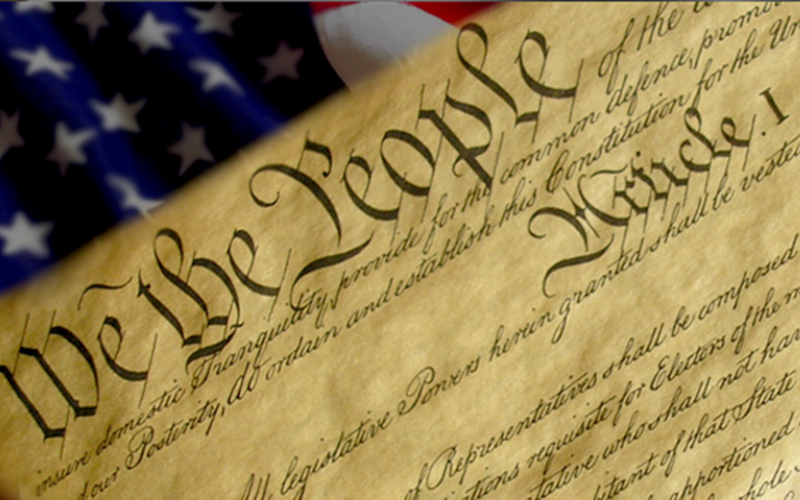 We the People of the
insure domestic Tranquility, provide for the common defence, promo
our Posterity, do ordain and establish this Constitution for the Un
Article. I
All legislative Powers herein granted shall be vested
of Representatives shall be composed
requisite for Electors of the m
who shall not hav
of that State
apportioned
whole